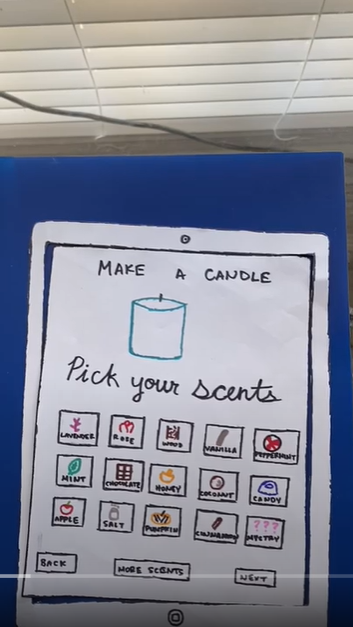 MAKE A CANDLE
Pick your scents
LAVENDER ROSE WOOD VANILLA PEPPERMINT
MINT CHOCOLATE HONEY COCONUT CANDY
APPLE SALT PUMPKIN CINNAMON MYSTRY
???
BACK MORE SCENTS NEXT